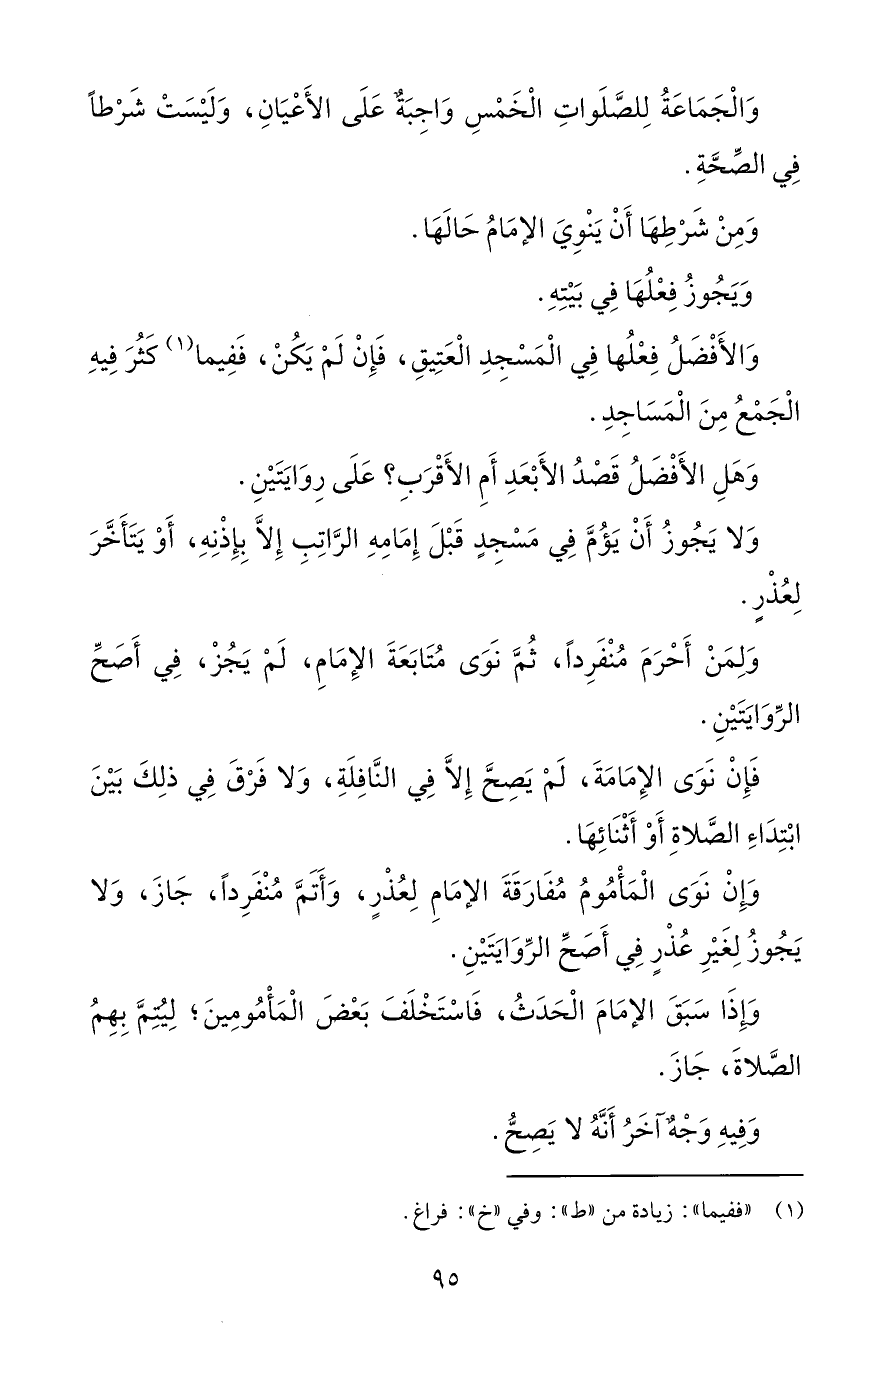 وَالْجَمَاعَةُ لِلصَّلَواتِ الْخَمْسِ وَاجِبَةٌ عَلَى الأَعْيَانِ، وَلَيْسَتْ شَرْطاً
فِي الصِّحَّةِ.
وَمِنْ شَرْطِهَا أَنْ يَنْوِيَ الإمَامُ حَالَهَا.
وَيَجُوزُ فِعْلُهَا فِي بَيْتِهِ.
وَالأَفْضَلُ فِعْلُها فِي الْمَسْجِدِ الْعَتِيقِ، فَإِنْ لَمْ يَكُنْ، فَفِيما(١) كَثُرَ فِيهِ
الْجَمْعُ مِنَ الْمَسَاجِدِ.
وَهَلِ الأَفْضَلُ قَصْدُ الأَبْعَدِ أَمِ الأَقْرَبِ؟ عَلَى رِوَايَتَيْنِ.
وَلا يَجُوزُ أَنْ يَؤُمَّ فِي مَسْجِدٍ قَبْلَ إِمَامِهِ الرَّاتِبِ إِلاَّ بِإِذْنِهِ، أَوْ يَتَأَخَّرَ
لِعُذْرٍ.
وَلِمَنْ أَحْرَمَ مُنْفَرِداً، ثُمَّ نَوَى مُتَابَعَةَ الإِمَامِ، لَمْ يَجُزْ، فِي أَصَحِّ
الرِّوَايَتَيْنِ.
فَإِنْ نَوَى الإِمَامَةَ، لَمْ يَصِحَّ إِلاَّ فِي النَّافِلَةِ، وَلا فَرْقَ فِي ذلِكَ بَيْنَ
ابْتِدَاءِ الصَّلاةِ أَوْ أَثْنَائِهَا.
وَإِنْ نَوَى الْمَأْمُومُ مُفَارَقَةَ الإمَامِ لِعُذْرٍ، وَأَتَمَّ مُنْفَرِداً، جَازَ، وَلا
يَجُوزُ لِغَيْرِ عُذْرٍ فِي أَصَحِّ الرِّوَايَتَيْنِ.
وَإِذَا سَبَقَ الإمَامَ الْحَدَثُ، فَاسْتَخْلَفَ بَعْضَ الْمَأْمُومِينَ؛ لِيُتِمَّ بِهِمُ
الصَّلاةَ، جَازَ.
وَفِيهِ وَجْهٌ آخَرُ أَنَّهُ لا يَصِحُّ.
(١) «ففيما»: زيادة من «ط»: وفي «خ»: فراغ.
٩٥